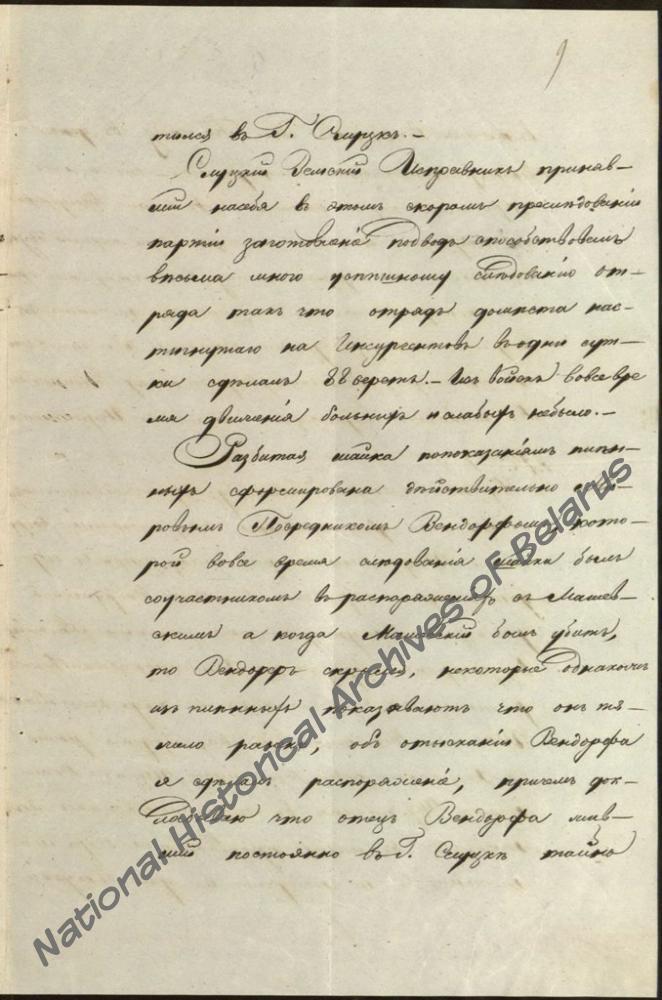 9
тился въ Г. Слуцкъ. —
Слуцкій Земскій Исправникъ приняв-
шій насебя въ этомъ скоромъ преслѣдованіи
партіи заготовленіе подводъ способствовалъ
весьма много успѣшному слѣдованію от-
ряда такъ что отрядъ домѣста нас-
тигнутаго на Инсургентовъ въодни сут-
ки сдѣлалъ 88 верстъ. — Изъ Войскъ вовсе вре
мя движенія больныхъ и слабыхъ небыло. —
Разбитая шайка попоказаніямъ плѣн-
ныхъ сформирована дѣйствительно
ровымъ Посредникомъ Вендорфомъ, кото-
рой вовсе время слѣдованія шайки былъ
соучастникомъ въ распоряженіяхъ съ Машев-
скимъ а когда Машевскій былъ убитъ,
то Вендорфъ скрылся, некоторые однакожъ
изъ плѣнныхъ показываютъ что онъ тя-
жело раненъ, объ отысканіи Вендорфа
я сдѣлалъ распоряженіе, причемъ док-
ладываю что отецъ Вендорфа жив-
шій постоянно въ Г. Слуцкѣ тайно
National Historical Archives of Belarus